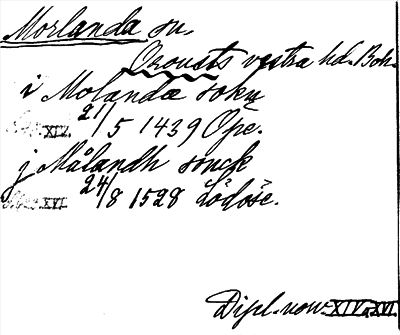 Morlanda sn.
Orousts vestra hd. Boh.
i Molanda sokn
XIV. 21/5 1439 Ope.
j Målandh sonck
XVI. 24/8 1528 Lödöse.
Dipl. norv. XIV, XVI.